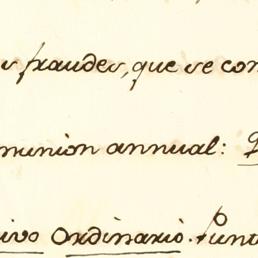 s fraudes, que se con
munion annual:
ivo Ordinario. Punt